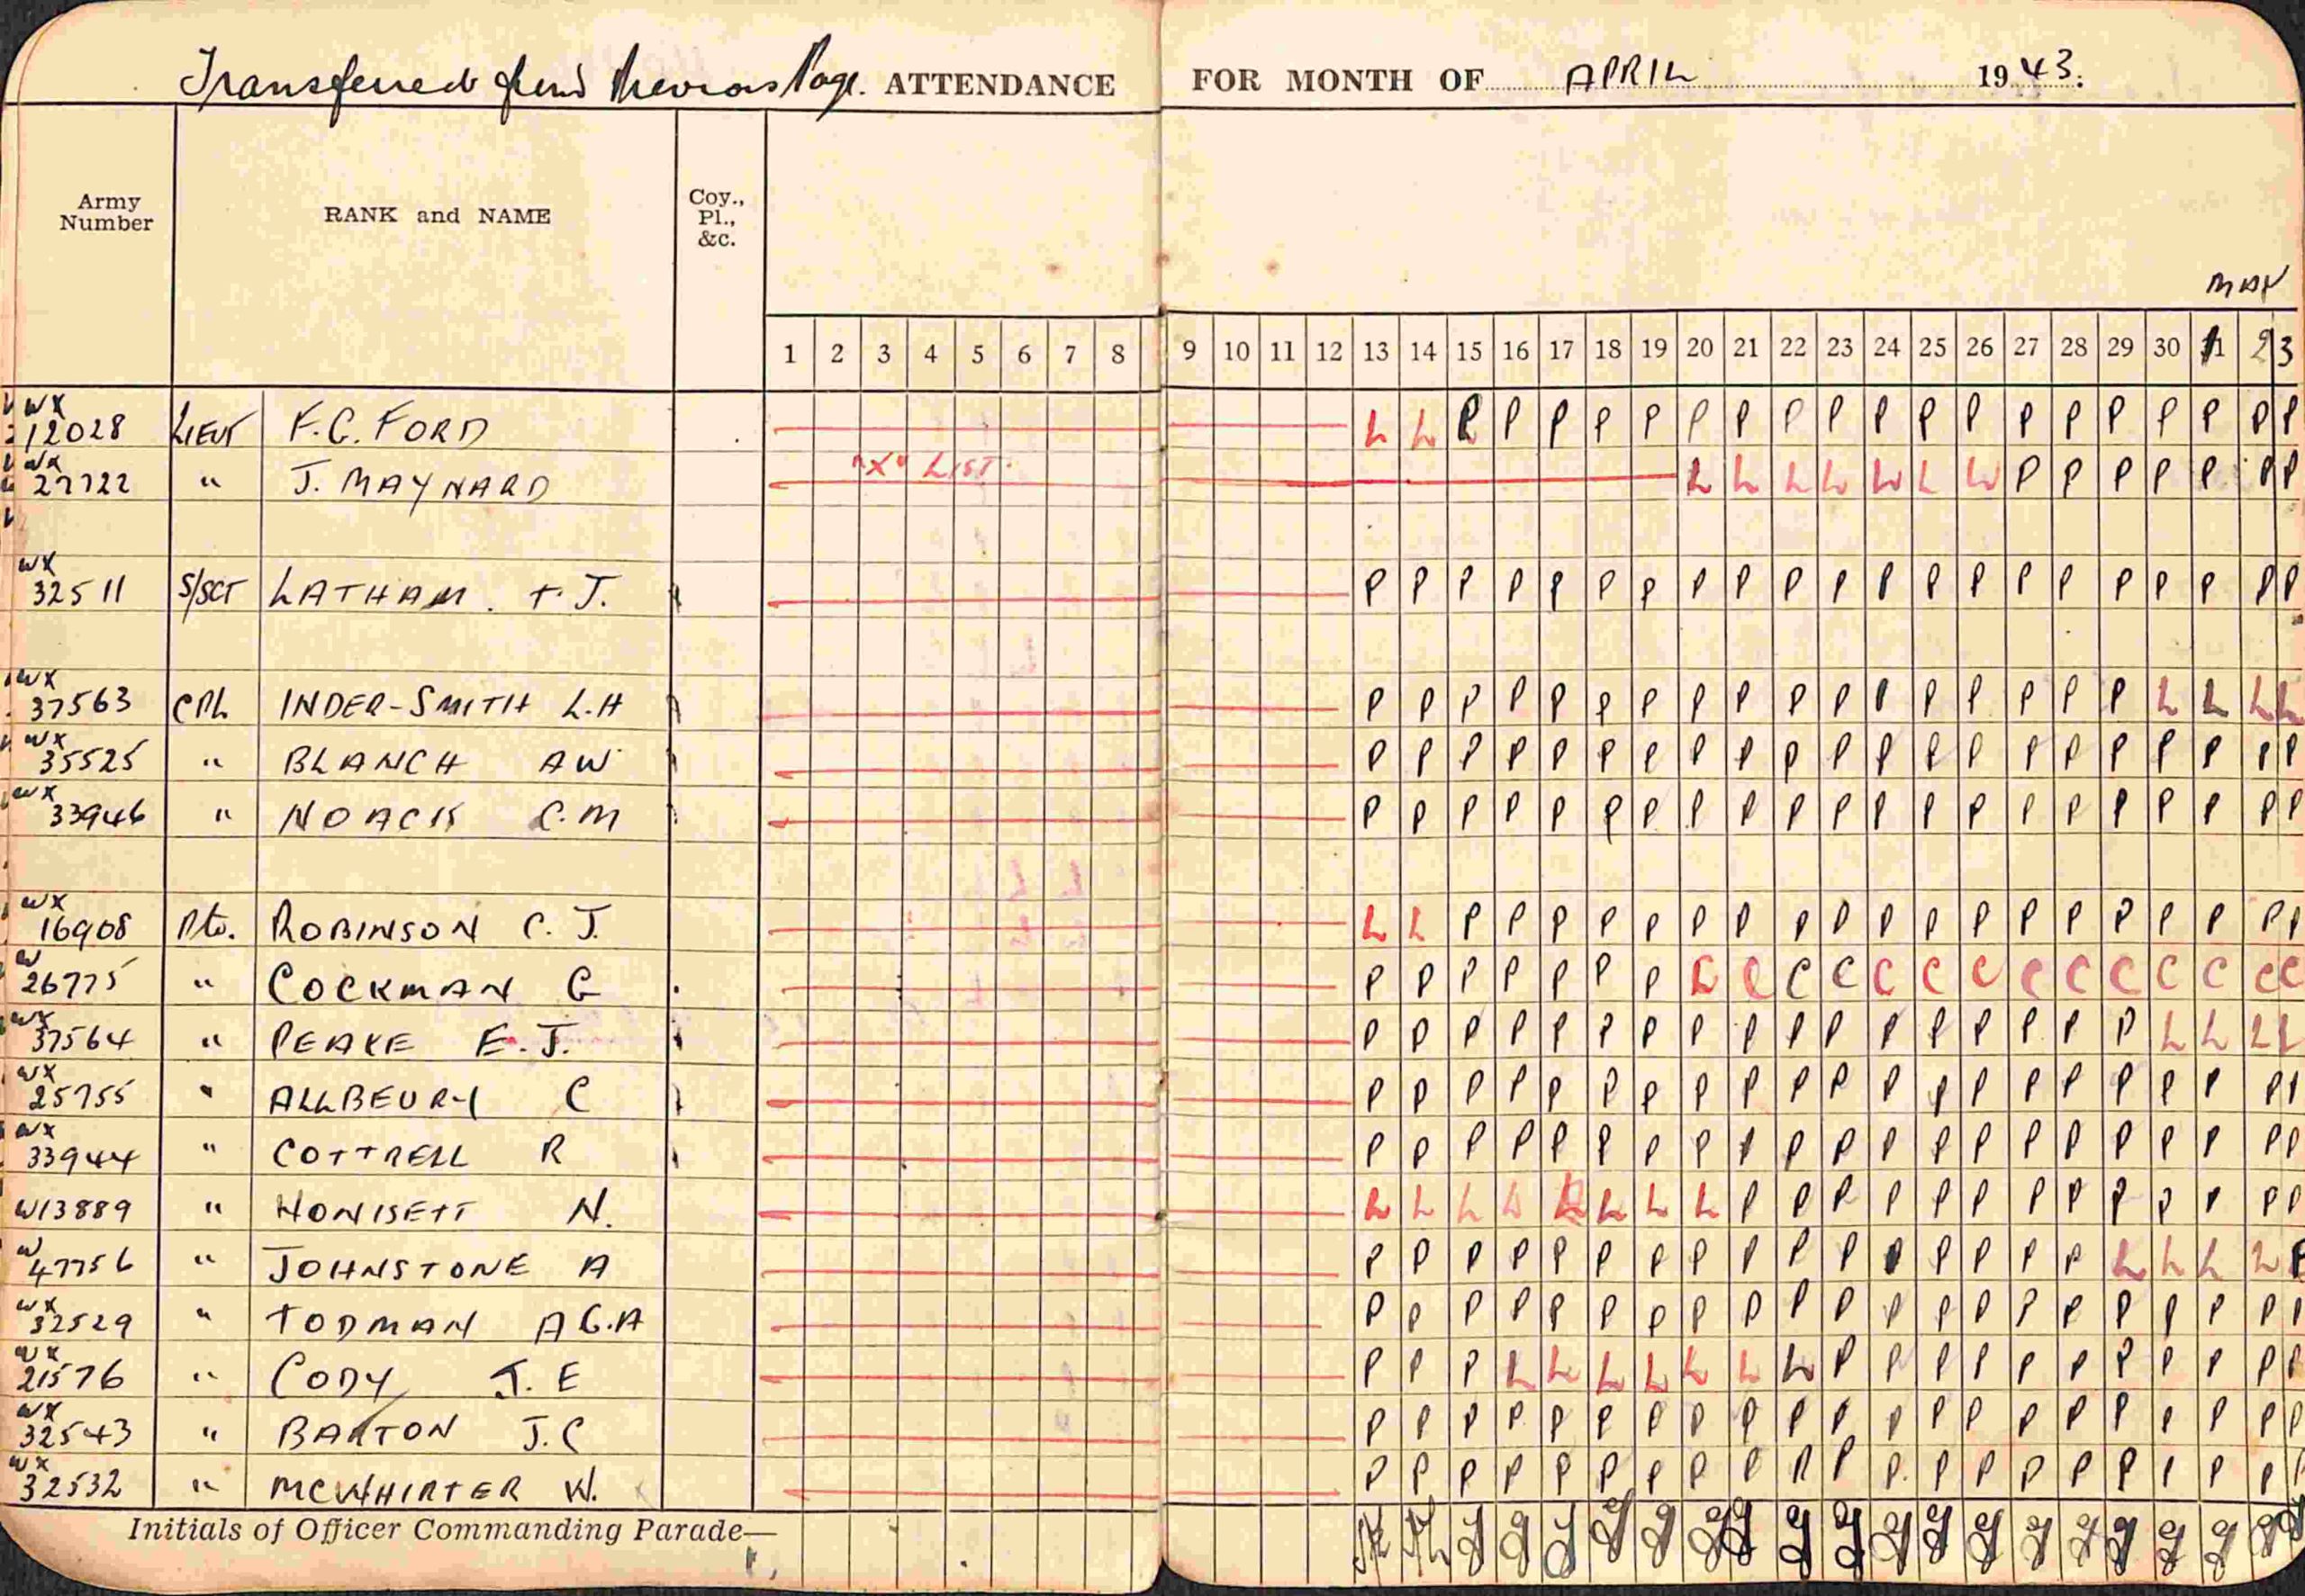 Transferred from Previous Page. ATTENDANCE FOR MONTH OF APRIL 1943.
Army Number RANK and NAME Coy., Pl., &c.
MAY
1 2 3 4 5 6 7 8 9 10 11 12 13 14 15 16 17 18 19 20 21 22 23 24 25 26 27 28 29 30 1 2 3
WX 12028 LIEUT F.G. FORD L L P P P P P P P P P P P P P P P P P P P
WX 27722 " J. MAYNARD "X" LIST. L L L L L L L P P P P P P P
WX 32511 S/SGT LATHAM. T.J. P P P P P P P P P P P P P P P P P P P P P
WX 37563 CPL INDER-SMITH L.H P P P P P P P P P P P P P P P P P L L L L
WX 35525 " BLANCH AW P P P P P P P P P P P P P P P P P P P P P
WX 33946 " NOACK C.M P P P P P P P P P P P P P P P P P P P P P
WX 16908 Pte. ROBINSON C.J. L L P P P P P P P P P P P P P P P P P P P
W 26775 " COCKMAN G P P P P P P P C C C C C C C C C C C C C C
WX 37564 " PEAKE E.J. P P P P P P P P P P P P P P P P P L L L L
WX 25755 " ALLBEURY C P P P P P P P P P P P P P P P P P P P P P
WX 33944 " COTTRELL R P P P P P P P P P P P P P P P P P P P P P
W13889 " HONISETT N. L L L L L L L L P P P P P P P P P P P P P
W 47756 " JOHNSTONE A P P P P P P P P P P P P P P P P L L L L P
WX 32529 " TODMAN A G.A P P P P P P P P P P P P P P P P P P P P P
WX 21576 " CODY J.E P P P L L L L L L L P P P P P P P P P P P
WX 32543 " BARTON J.C P P P P P P P P P P P P P P P P P P P P P
WX 32532 " MCWHIRTER W. P P P P P P P P P P P P P P P P P P P P P
Initials of Officer Commanding Parade—